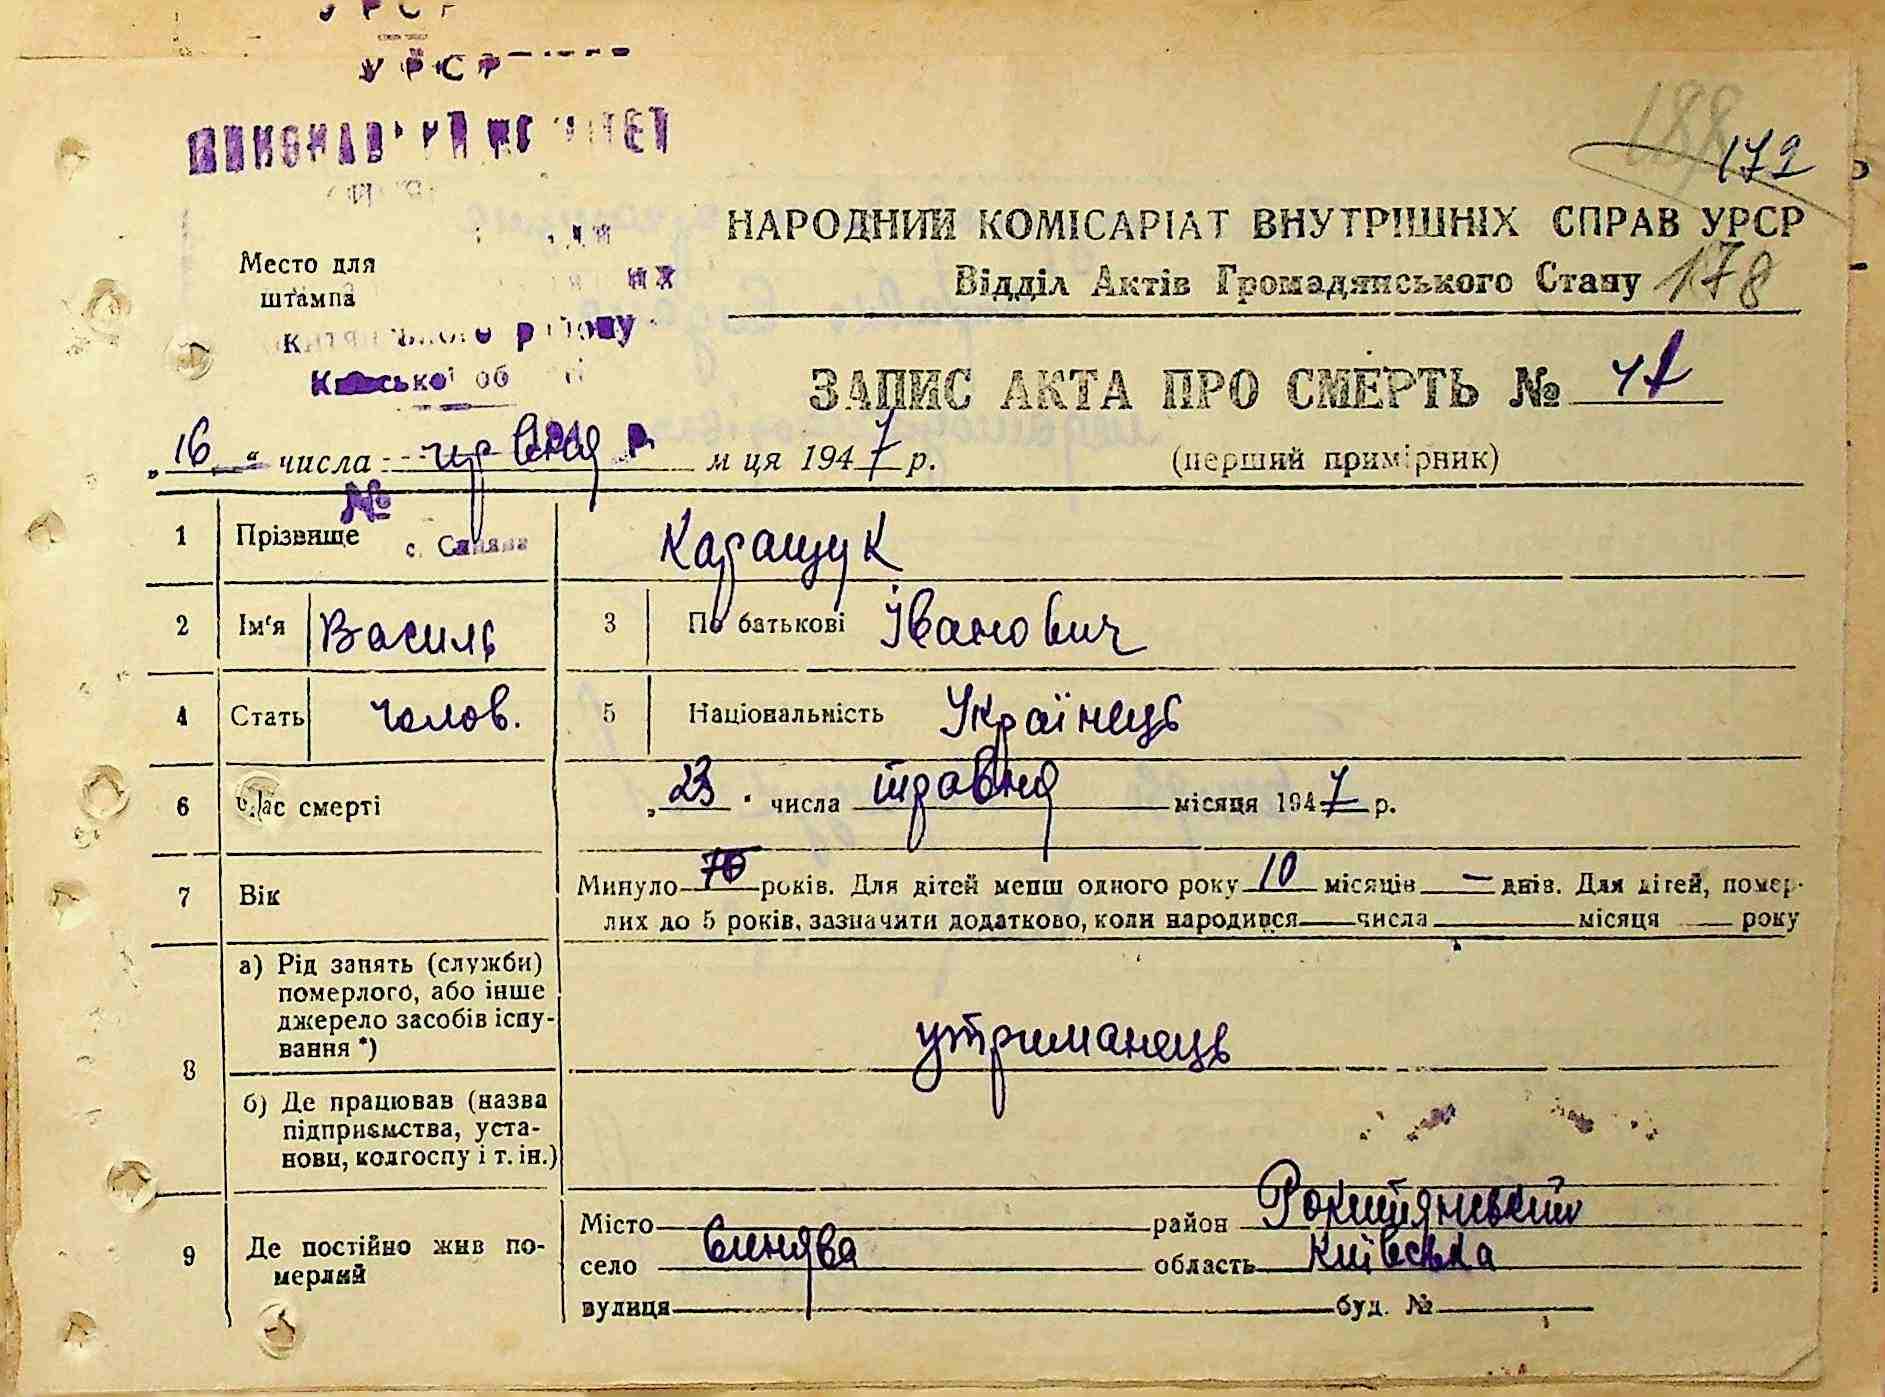 УРСР
УРСР
188
172
НАРОДНИЙ КОМІСАРІАТ ВНУТРІШНІХ СПРАВ УРСР
Відділ Актів Громадянського Стану 178
Место для
штампа
району
Київської об
ЗАПИС АКТА ПРО СМЕРТЬ №
„16“ числа червня м ця 1947 р.
(перший примірник)
№
с. Синява
1 Прізвище Каращук
2 Ім'я Василь 3 По батькові Іванович
4 Стать чолов. 5 Національність Українець
6 Час смерті „23" числа травня місяця 1947 р.
7 Вік Минуло років. Для дітей менш одного року 10 місяців — днів. Для дітей, помер-
лих до 5 років, зазначити додатково, коли народився числа місяця року
8 а) Рід занять (служби)
померлого, або інше
джерело засобів існу-
вання *)
утриманець
б) Де працював (назва
підприємства, уста-
нови, колгоспу і т. ін.)
9 Де постійно жив по-
мерлий
Місто район Рокитянський
село Синява область Київська
вулиця буд. №